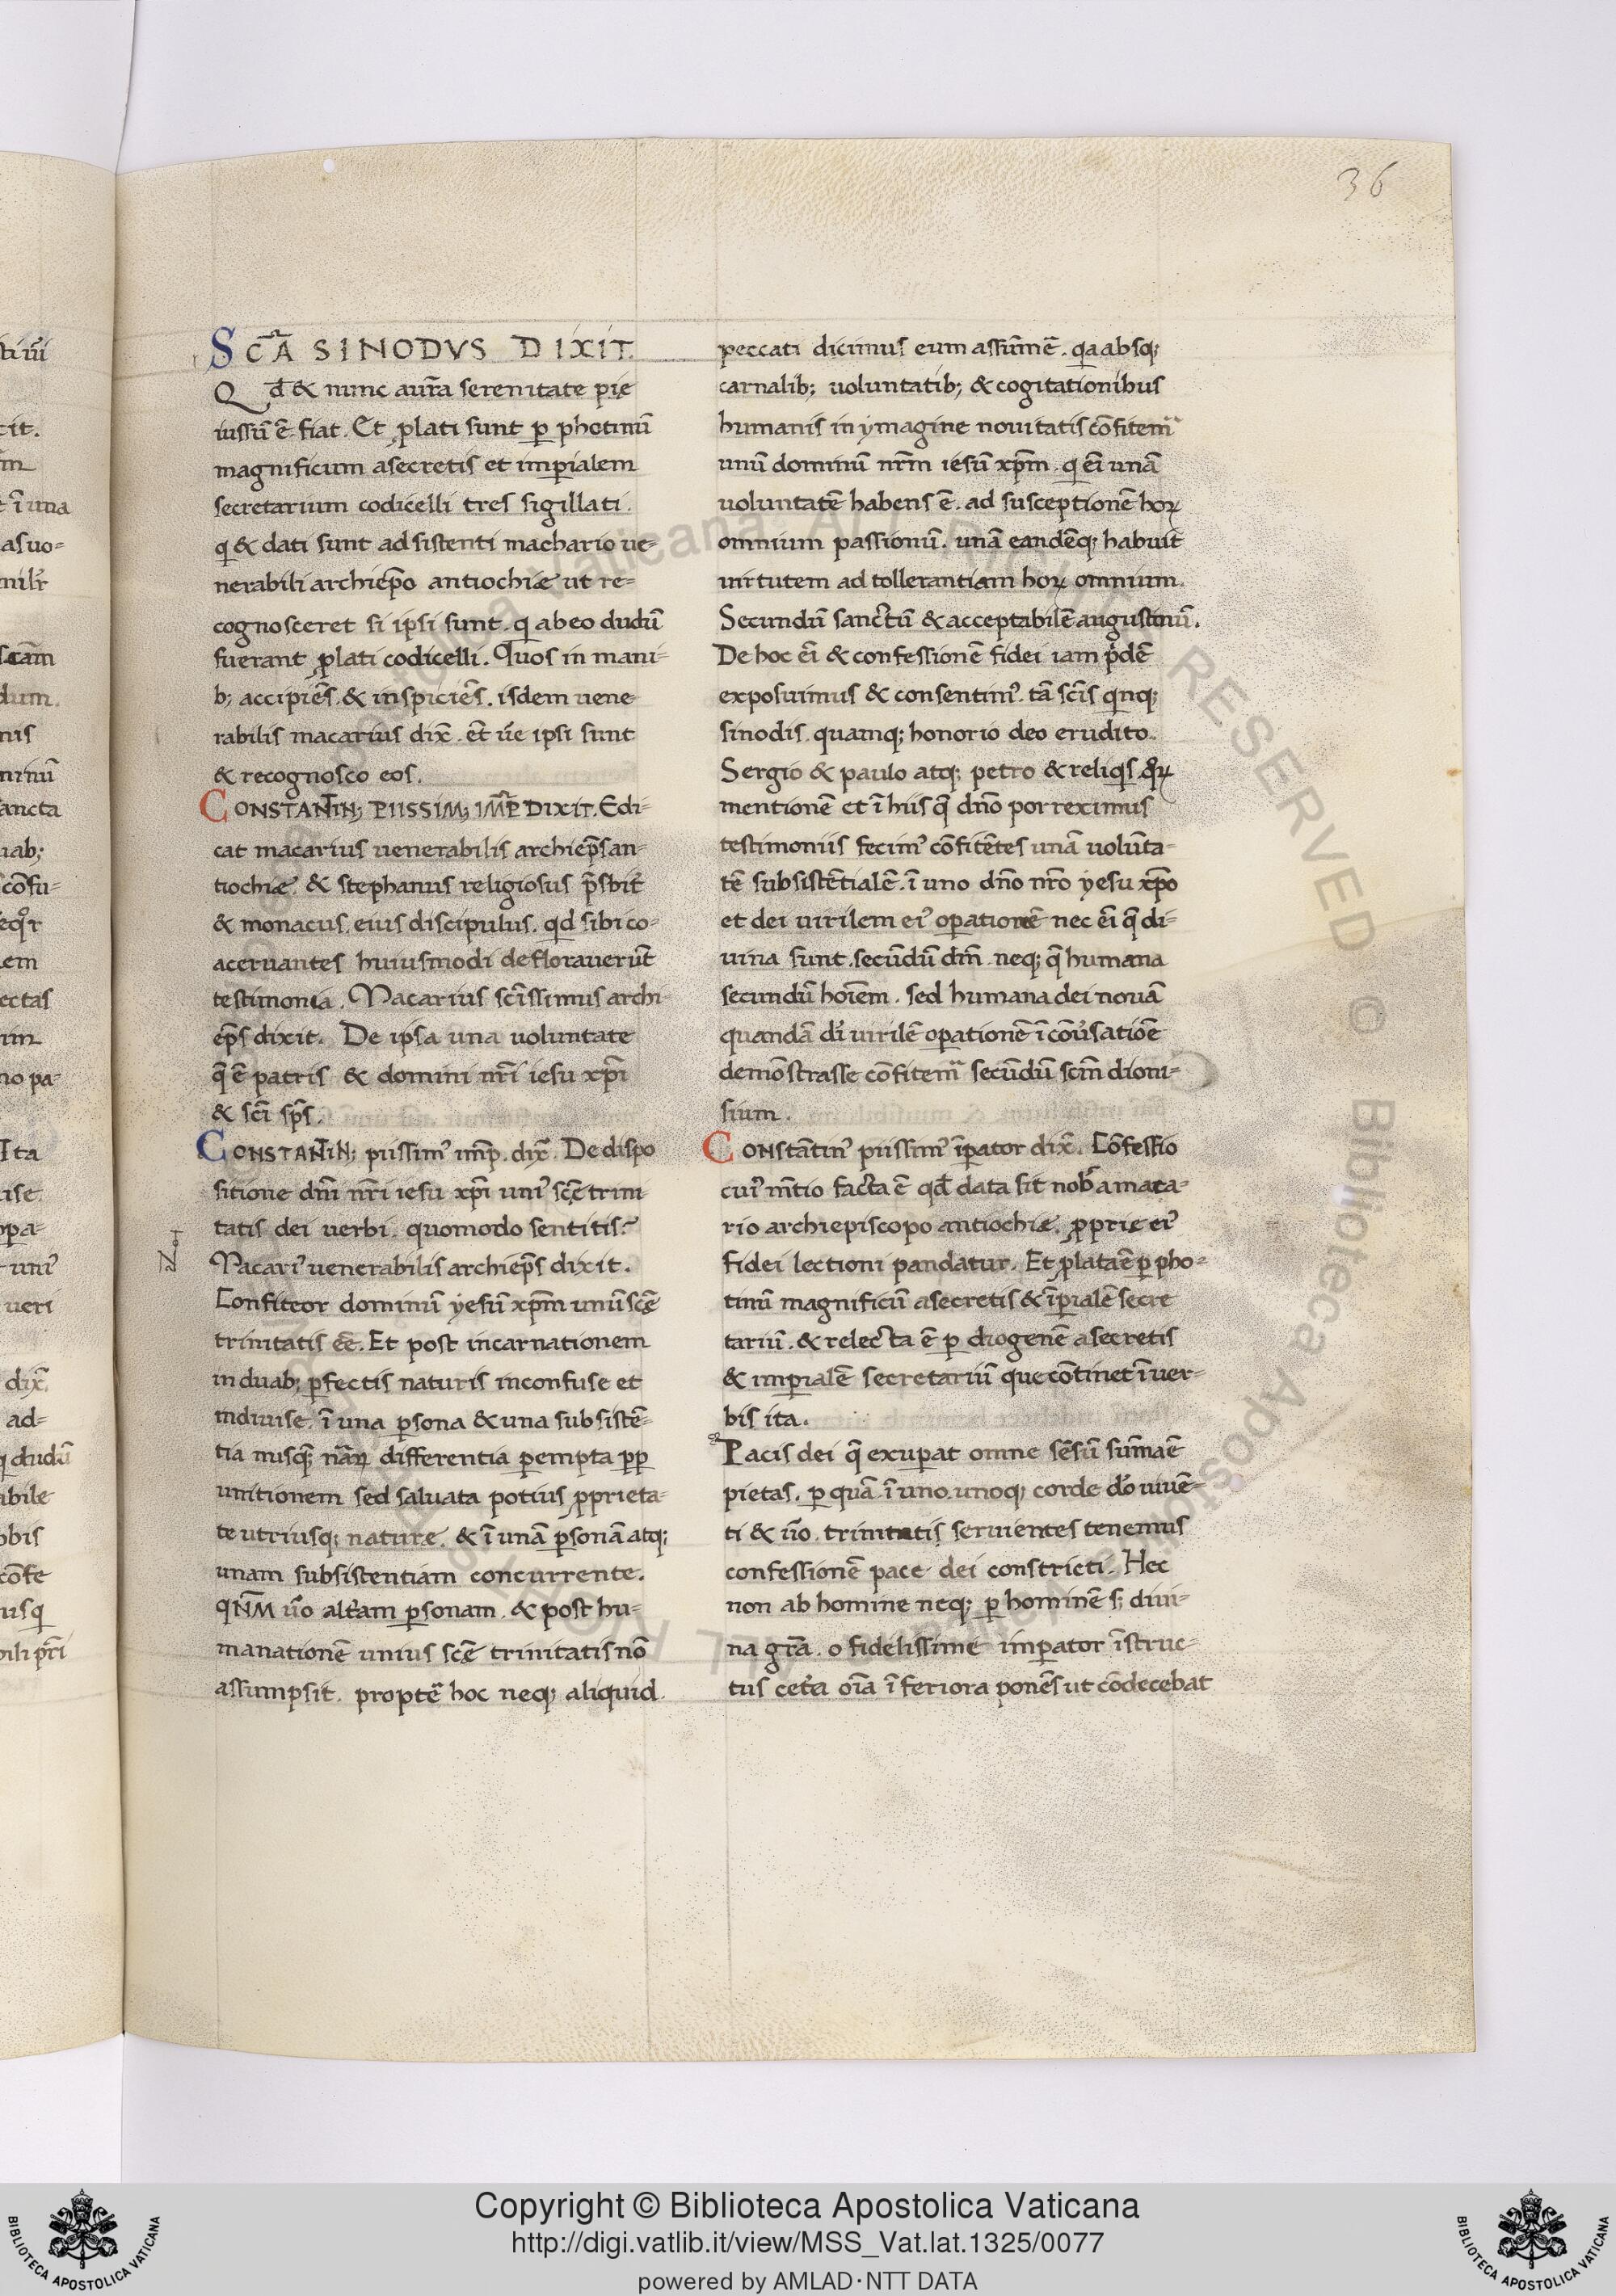 36
SCĀ SINODVS DIXIT.
Qd̄ & nunc aur̄a serenitate pię
iussū ē fiat. Et ꝓlati sunt ꝑ photinū
magnificum asecretis et imꝑialem
secretarium codicelli tres sigillati.
q & dati sunt adsistenti machario ue-
nerabili archiep̄o antiochiæ ut re-
cognosceret si ipsi sunt. q abeo dudū
fuerant ꝓlati codicelli. Quos in mani-
b; accipiēs. & inspiciēs. isdem uene
rabilis macarius dix̄. et̄ ūe ipsi sunt
& recognosco eos.
CONSTANTIN; PIISSIM; IMP̄ DIXIT. Edi-
cat macarius uenerabilis archiep̄s an-
tiochiæ & stephanus religiosus p̄sbit̄
& monacus, eius discipulus. qd sibi co-
aceruantes huiusmodi deflorauerūt
testimonia. Macarius scīssimus archi
ep̄s dixit. De ipsa una uoluntate
q̄ ē patris & domini nr̄i iesu xp̄i
& scī sp̄s.
CONSTANTIN; piissim᾽ imp̄. dix̄. De dispo
sitione dn̄i nr̄i iesu xp̄i uni᾽ scę̄ trini
tatis dei uerbi. quomodo sentitis?
Macari᾽ uenerabilis archiep̄s dixit.
Confiteor dominū yesū xp̄m unū scę̄
trinitatis eē. Et post incarnationem
in duab; ꝑfectis naturis inconfuse et
indiuise. ī una ꝑsona & una subsistē-
tia nusq̄ nāꝝ differentia ꝑempta ꝓꝑ
unitionem sed saluata potius ꝓprieta-
te utriusq; naturæ. & ī unā ꝑsonā atq;
unam subsistentiam concurrente.
qN̄M ūo alt̄am ꝑsonam. & post hu-
manationē unius scę̄ trinitatis nō
assumpsit. proptē hoc neq; aliquid
peccati dicimus eum assūmē. qa absq;
carnalib; uoluntatib; & cogitationibus
humanis in ymagine nouitatis cōfitem᷑
unū dominū nr̄m iesū xp̄m. q eī unā
uoluntatē habens ē. ad susceptionē hoꝝ
omnium passionū. unā eandēq; habuit
uirtutem ad tollerantiam hoꝝ omnium.
Secundū sanctū & acceptabilē augustinū.
De hoc eī & confessionē fidei iam p̄dē
exposuimus & consentim᾽. tā scīs qnq;
sinodis. quamq; honorio deo erudito.
Sergio & paulo atq; petro & reliqs. qꝝ
mentionē et ī hiis q̄ dn̄o porreximus
testimoniis fecim᾽ cōfitētes unā uolūta-
tē subsistētialē. ī uno dn̄o nr̄o yesu xp̄o
et dei uirilem ei᾽ oꝑationē nec eī q̄ di-
uina sunt. secūdū dm̄. neq; q̄ humana
secundū hoīem. sed humana dei nouā
quandā dī uirilē oꝑationē ī cōūsatiōe
demōstrasse cōfitem᷑ secūdū scm̄ dioni-
sium.
CONstātin᾽ piissim᾽ īꝑator dix̄. Cōfessio
cui᾽ m̄tio facta ē qd̄ data sit nob̄ a maca-
rio archiepiscopo antiochiæ. ꝓprie ei᾽
fidei lectioni pandatur. Et ꝓlata ē ꝑ pho-
tinū magnificū asecretis & īꝑialē secre
tariū. & relecta ē ꝑ diogenē asecretis
& imꝑialē secretariū que cōtinet ī uer-
bis ita.
Pacis dei q̄ exuꝑat omne sēsū sūma ē
pietas. ꝑ quā ī uno unoq; corde dō uiuē-
ti & ūo. trinitatis seruientes tenemus
confessionē pace dei constricti. Hec
non ab homine neq; ꝑ hominē s; diui-
na gr̄a. o fidelissime imꝑator īstruc-
tus cet̄a oīa īferiora ponēs ut cōdecebat
Copyright © Biblioteca Apostolica Vaticana
http://digi.vatlib.it/view/MSS_Vat.lat.1325/0077
powered by AMLAD·NTT DATA
BIBLIOTECA APOSTOLICA VATICANA
BIBLIOTECA APOSTOLICA VATICANA